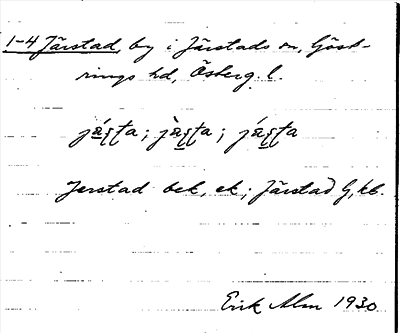 1-4 Järstad, by i Järstads sn, Göst-
rings hd, Österg. l.
Jerstad bek, ek; Järstad G, kb.
Erik Alm 1930